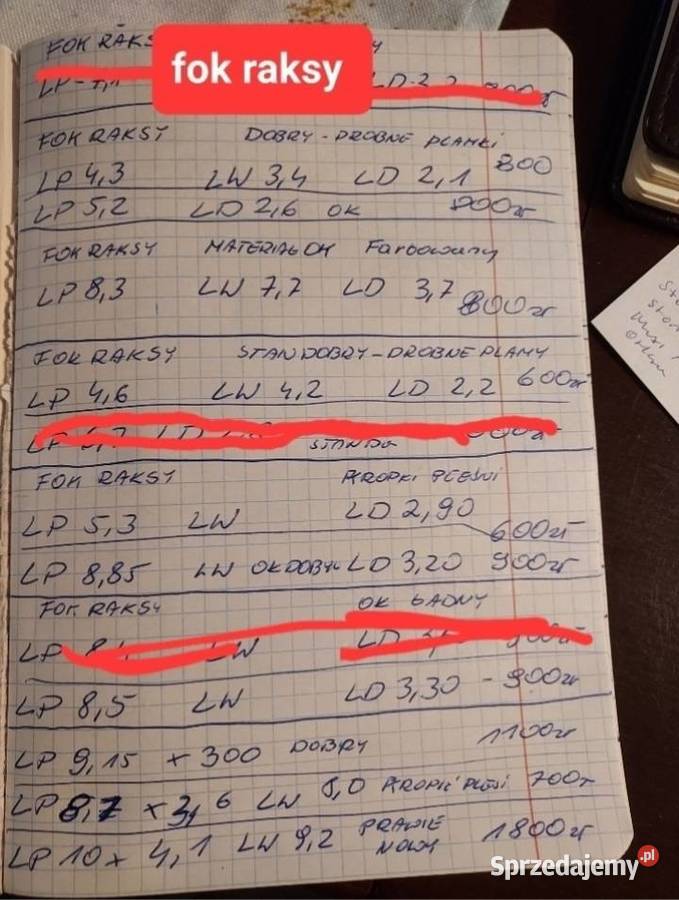 FOK RAKS
fok raksy
LP
LD 2,2
FOK RAKSY DOBRY - DROBNE PLAMKI
LP 4,3 LW 3,4 LD 2,1 800
LP 5,2 LD 2,6 OK 900zł
FOK RAKSY MATERIAŁ OK Farbowany
LP 8,3 LW 7,7 LD 3,7 800zł
FOK RAKSY STAN DOBRY - DROBNE PLAMY
LP 4,6 LW 4,2 LD 2,2 600zł
LP LD
FOK RAKSY KROPKI PLEŚNI
LP 5,3 LW LD 2,90 600zł
LP 8,85 LW OK DOBRY LD 3,20 900zł
FOK RAKSY OK ŁADNY
LP LW LD
LP 8,5 LW LD 3,30 - 900zł
LP 9,15 x 300 DOBRY 1100zł
LP 8,7 x 3,6 LW 8,0 KROPKI PLEŚNI 700zł
LP 10 x 4,1 LW 9,2 PRAWIE NOWY 1800zł
Sprzedajemy.pl